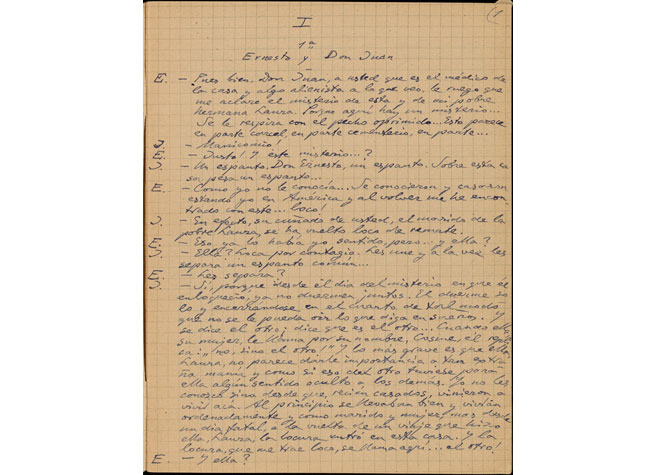 1
I
1ª
Ernesto y Don Juan
E. - Pues bien. Don Juan, a usted que es el médico de
la casa y algo alienista a lo que veo, le ruego que
me aclare el misterio de esta y de mi pobre
hermana Laura. Porque aquí hay un misterio...
Se le respira con el pecho oprimido. Esto parece
en parte carcel, en parte cementerio, en parte...
J. - Manicomio!
E. - Justo! Y este misterio...?
J. - Un espanto, Don Ernesto, un espanto. Sobre esta ca
sa pesa un espanto...
E. - Como yo no le conocía... Se conocieron y casaron
estando yo en America y al volver me he encon
trado con este... loco!
J. - En efecto, su cuñado de usted, el marido de la
pobre Laura, se ha vuelto loco de remate.
E. - Eso ya lo había yo sentido, pero... y ella?
J. - Ella? Loca por contagio. Les une y a la vez les
separa un espanto común...
E. - Les separa?
J. - Sí, porque desde el día del misterio en que él
enloqueció, ya no duermen juntos. El duerme so
lo y encerrándose en el cuarto de tal modo
que no se le pueda oir lo que diga en sueños. Y
se dice el otro; dice que es el otro... Cuando ella,
su mujer, le llama por su nombre, Cosme, él replica
: "no, sino el otro!" Y lo más grave es que ella,
Laura, no parece darle importancia a tan extra
ña manía y como si eso del otro tuviese para
ella algún sentido oculto a los demas. Yo no les
conozco sino desde que, recién casados, vinieron a
vivir acá. Al principio se llevaban bien y vivían
ordenadamente y como marido y mujer, mas desde
un día fatal, a la vuelta de un viaje que hizo
ella, Laura, la locura entró en esta casa. Y la
locura, que me trae loco, se llama aquí... el otro!
E. - Y ella?